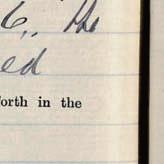 6,, the
ed
orth in the